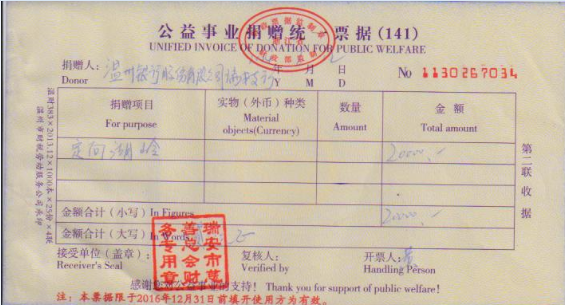 公益事业捐赠统一票据(141)
UNIFIED INVOICE OF DONATION FOR PUBLIC WELFARE
捐赠人：温州银行股份有限公司瑞安支行 年 月 日 No 1130267034
Donor Y M D
捐赠项目 实物（外币）种类 数量 金额
For purpose Material objects(Currency) Amount Total amount
定向 20000.-
金额合计（小写）In Figures 20000.-
金额合计（大写）In Words
接受单位（盖章）： 复核人： 开票人：
Receiver's Seal Verified by Handling Person
感谢您对公益事业的支持！Thank you for support of public welfare!
注：本票据限于2016年12月31日前填开使用方为有效。
第二联 收据
瑞安市慈善总会财务专用章